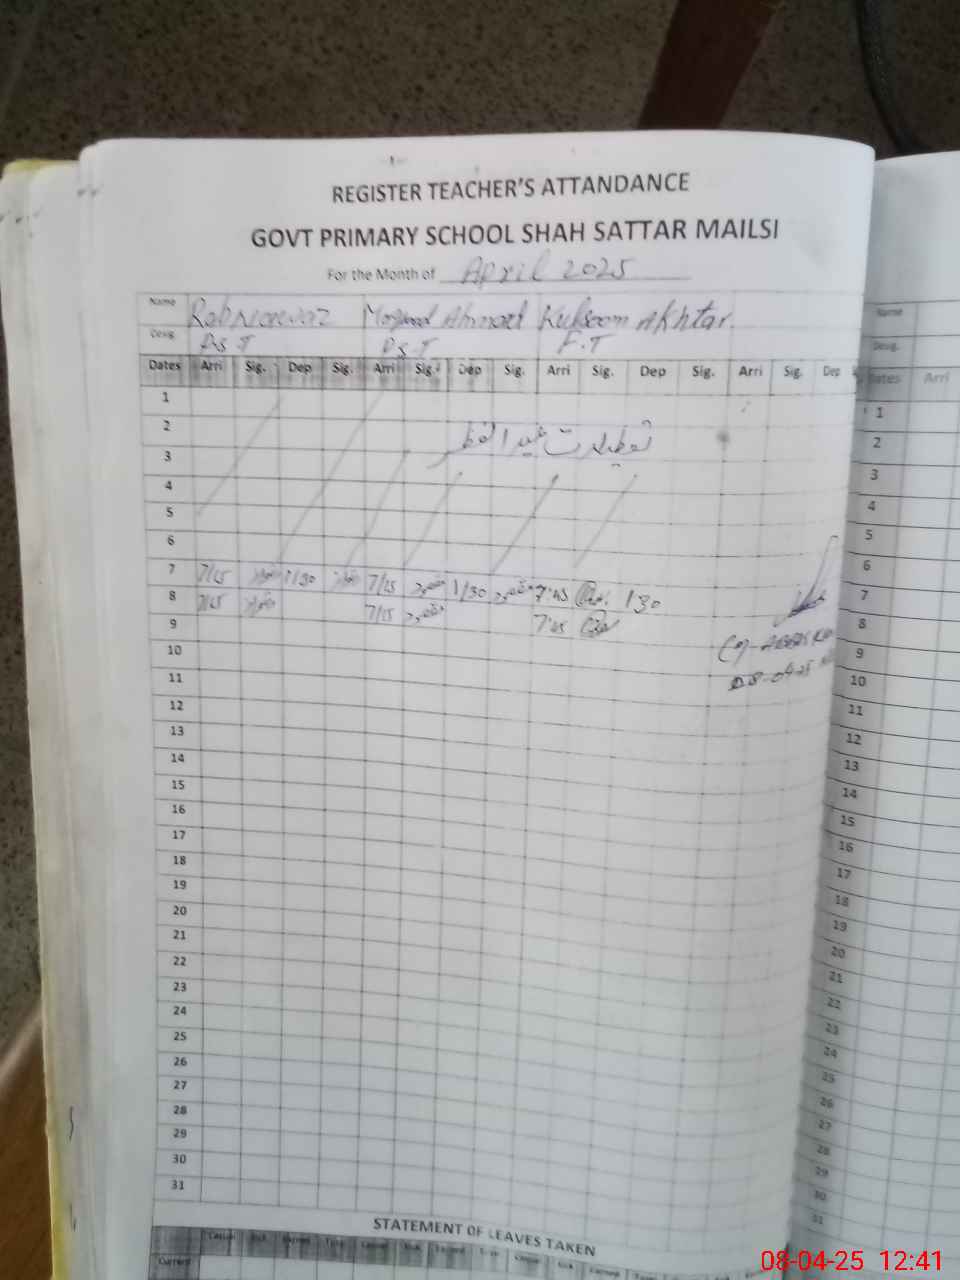 REGISTER TEACHER'S ATTANDANCE
GOVT PRIMARY SCHOOL SHAH SATTAR MAILSI
For the Month of April 2025
Name Rab Nawaz Maqsood Ahmad Kulsoom Akhtar.
Desig. P.S.T P.S.T F.T
Dates Arri Sig. Dep Sig. Arri Sig. Dep Sig. Arri Sig. Dep Sig. Arri Sig. Dep
1
2
تعطیلات عید الفطر
3
4
5
6
7 7/25 1/30 7/25 مقصود 1/30 مقصود 7:45 130
8 7/25 7/25 مقصود 7:45
9
08-04-25
10
11
12
13
14
15
16
17
18
19
20
21
22
23
24
25
26
27
28
29
30
31
STATEMENT OF LEAVES TAKEN
Casual Sick Earned Casual Sick Earned Casual Sick Earned
Current
Name
Desig.
Dates Arri
1
2
3
4
5
6
7
8
9
10
11
12
13
14
15
16
17
18
19
20
21
22
23
24
25
26
27
28
29
30
31
08-04-25 12:41